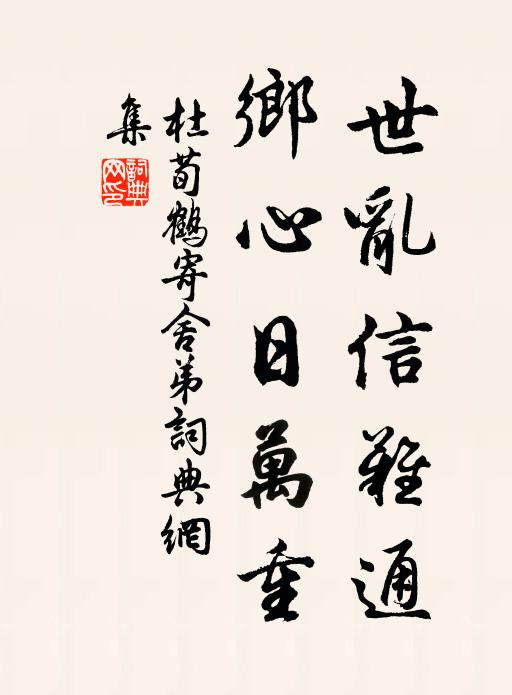 世亂信難通
鄉心日萬重
杜荀鶴寄舍弟詞典網
集
詞典
網印